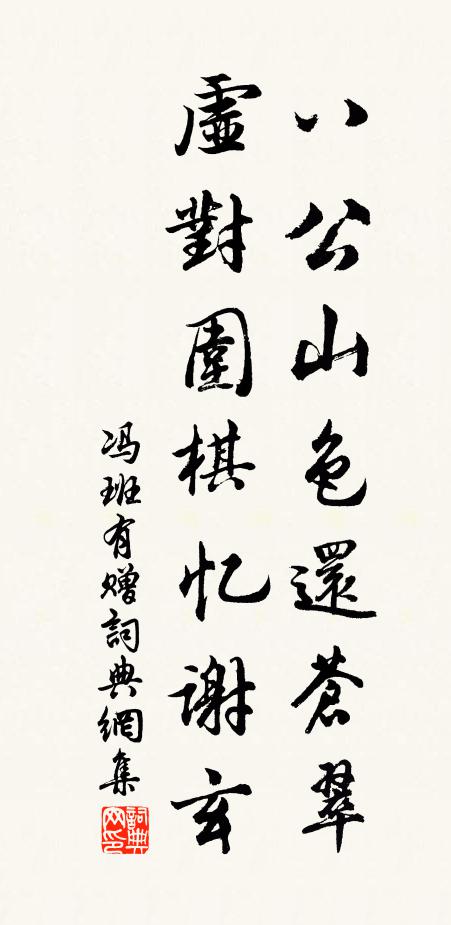 八公山色還蒼翠
虛對圍棋忆謝玄
冯班有赠詞典網集
詞典网印